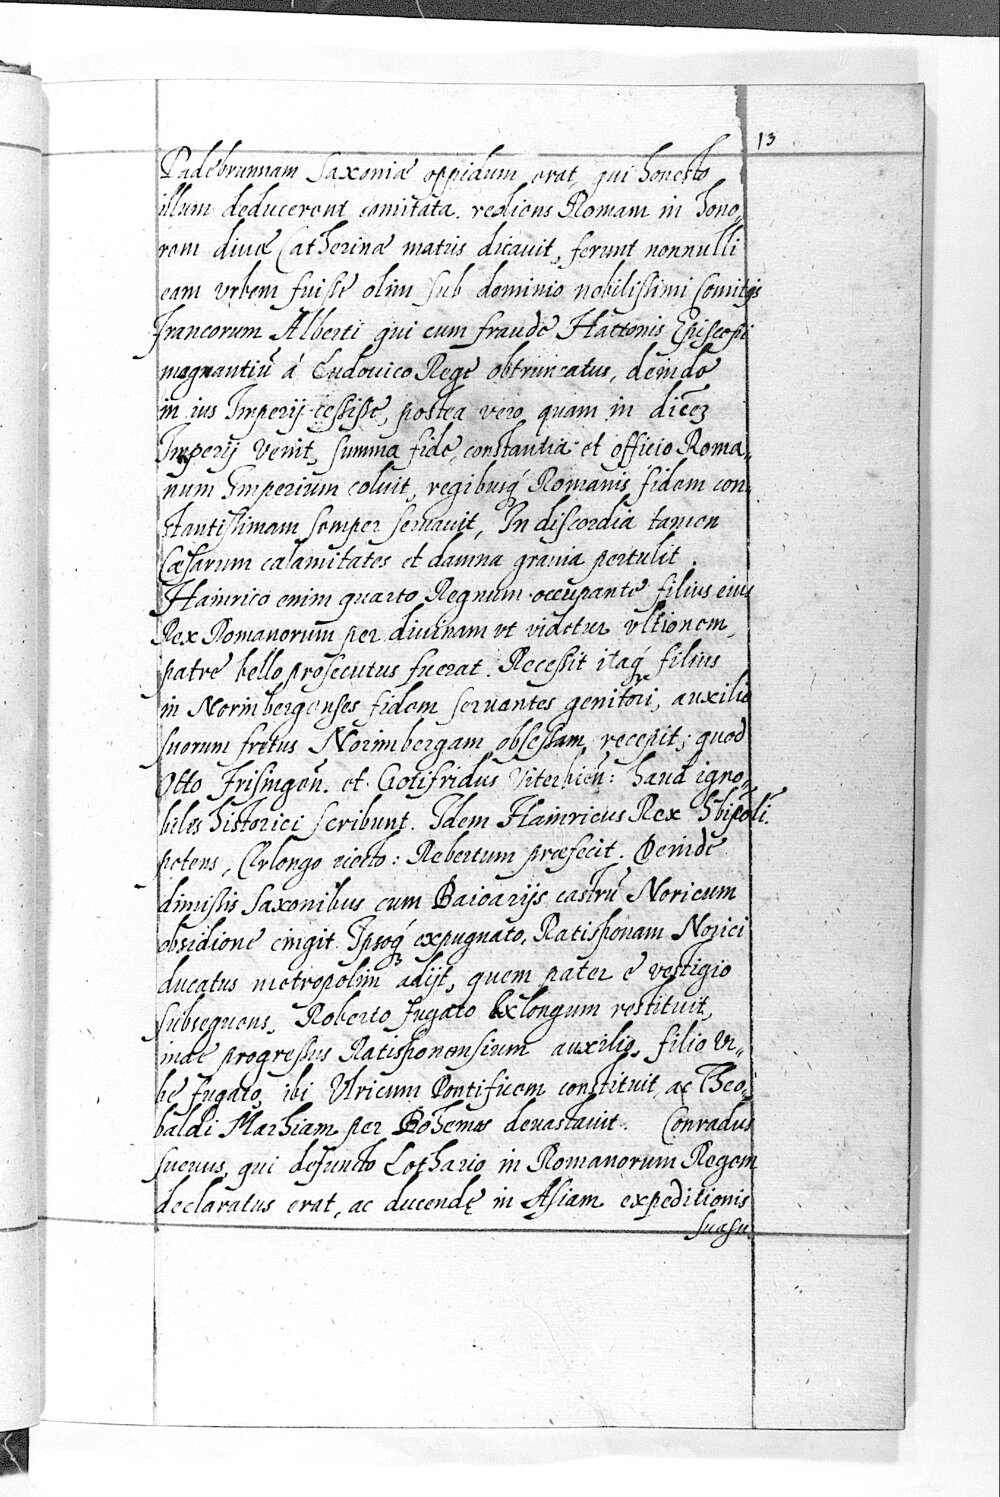 13
Padebrunnam Saxoniæ oppidum erat, qui honesto
illum deducerent comitata. rediens Romam in hono,,
rem divæ Catherinæ matris dicavit, ferunt nonnulli
eam vrbem fuisse olim sub dominio nobilissimi Comitis
Francorum Alberti qui cum fraude Hattonis Episcopi
mognantiũ á Ludouico Rege obtruncatus, deinde
in ius Imperij cessisse, postea vero quam in dicẽz
Imperij venit, summa fide, constantia et officio Roma,,
num Imperium coluit, regibusq́ Romanis fidem con,,
stantissimam semper seruauit, In discordia tamen
Cæsarum calamitates et damna grauia pertulit.
Hainrico enim quarto Regnum occupante filius eius
Rex Romanorum per diuinam vt videtur vltionem,
patrẽ bello prosecutus fuerat. Recessit itaq́ filius
in Norinbergenses fidem seruantes genitori, auxilio
suorum fretus Norimbergam obsessam recepit; quod
Otto Frisingeñ. et Gotifridus Viterbieñ: haud igno,,
biles historici scribunt. Idem Hainricus Rex Hbipoli.
potens, Erlongo riecto: Rebertum præfecit. Deinde
dimissis Saxonibus cum Baioarijs castrũ Noricum
obsidione cingit. Ipsoq́ expugnato, Ratisponam Norici
ducatus metropolim adijt, quem pater è vestigio
subsequens, Roberto fugato Exlongum restituit,
inde progressus Ratisponensium auxilio, filio vr,,
be fugato, ibi Vlricum Pontificem constituit, ac Theo,,
baldi Marhiam per Bohemos deuastauit. Conradus
sueuus, qui defuncto Lothario in Romanorum Regem
declaratus erat, ac ducendę in Asiam expeditionis
suasu